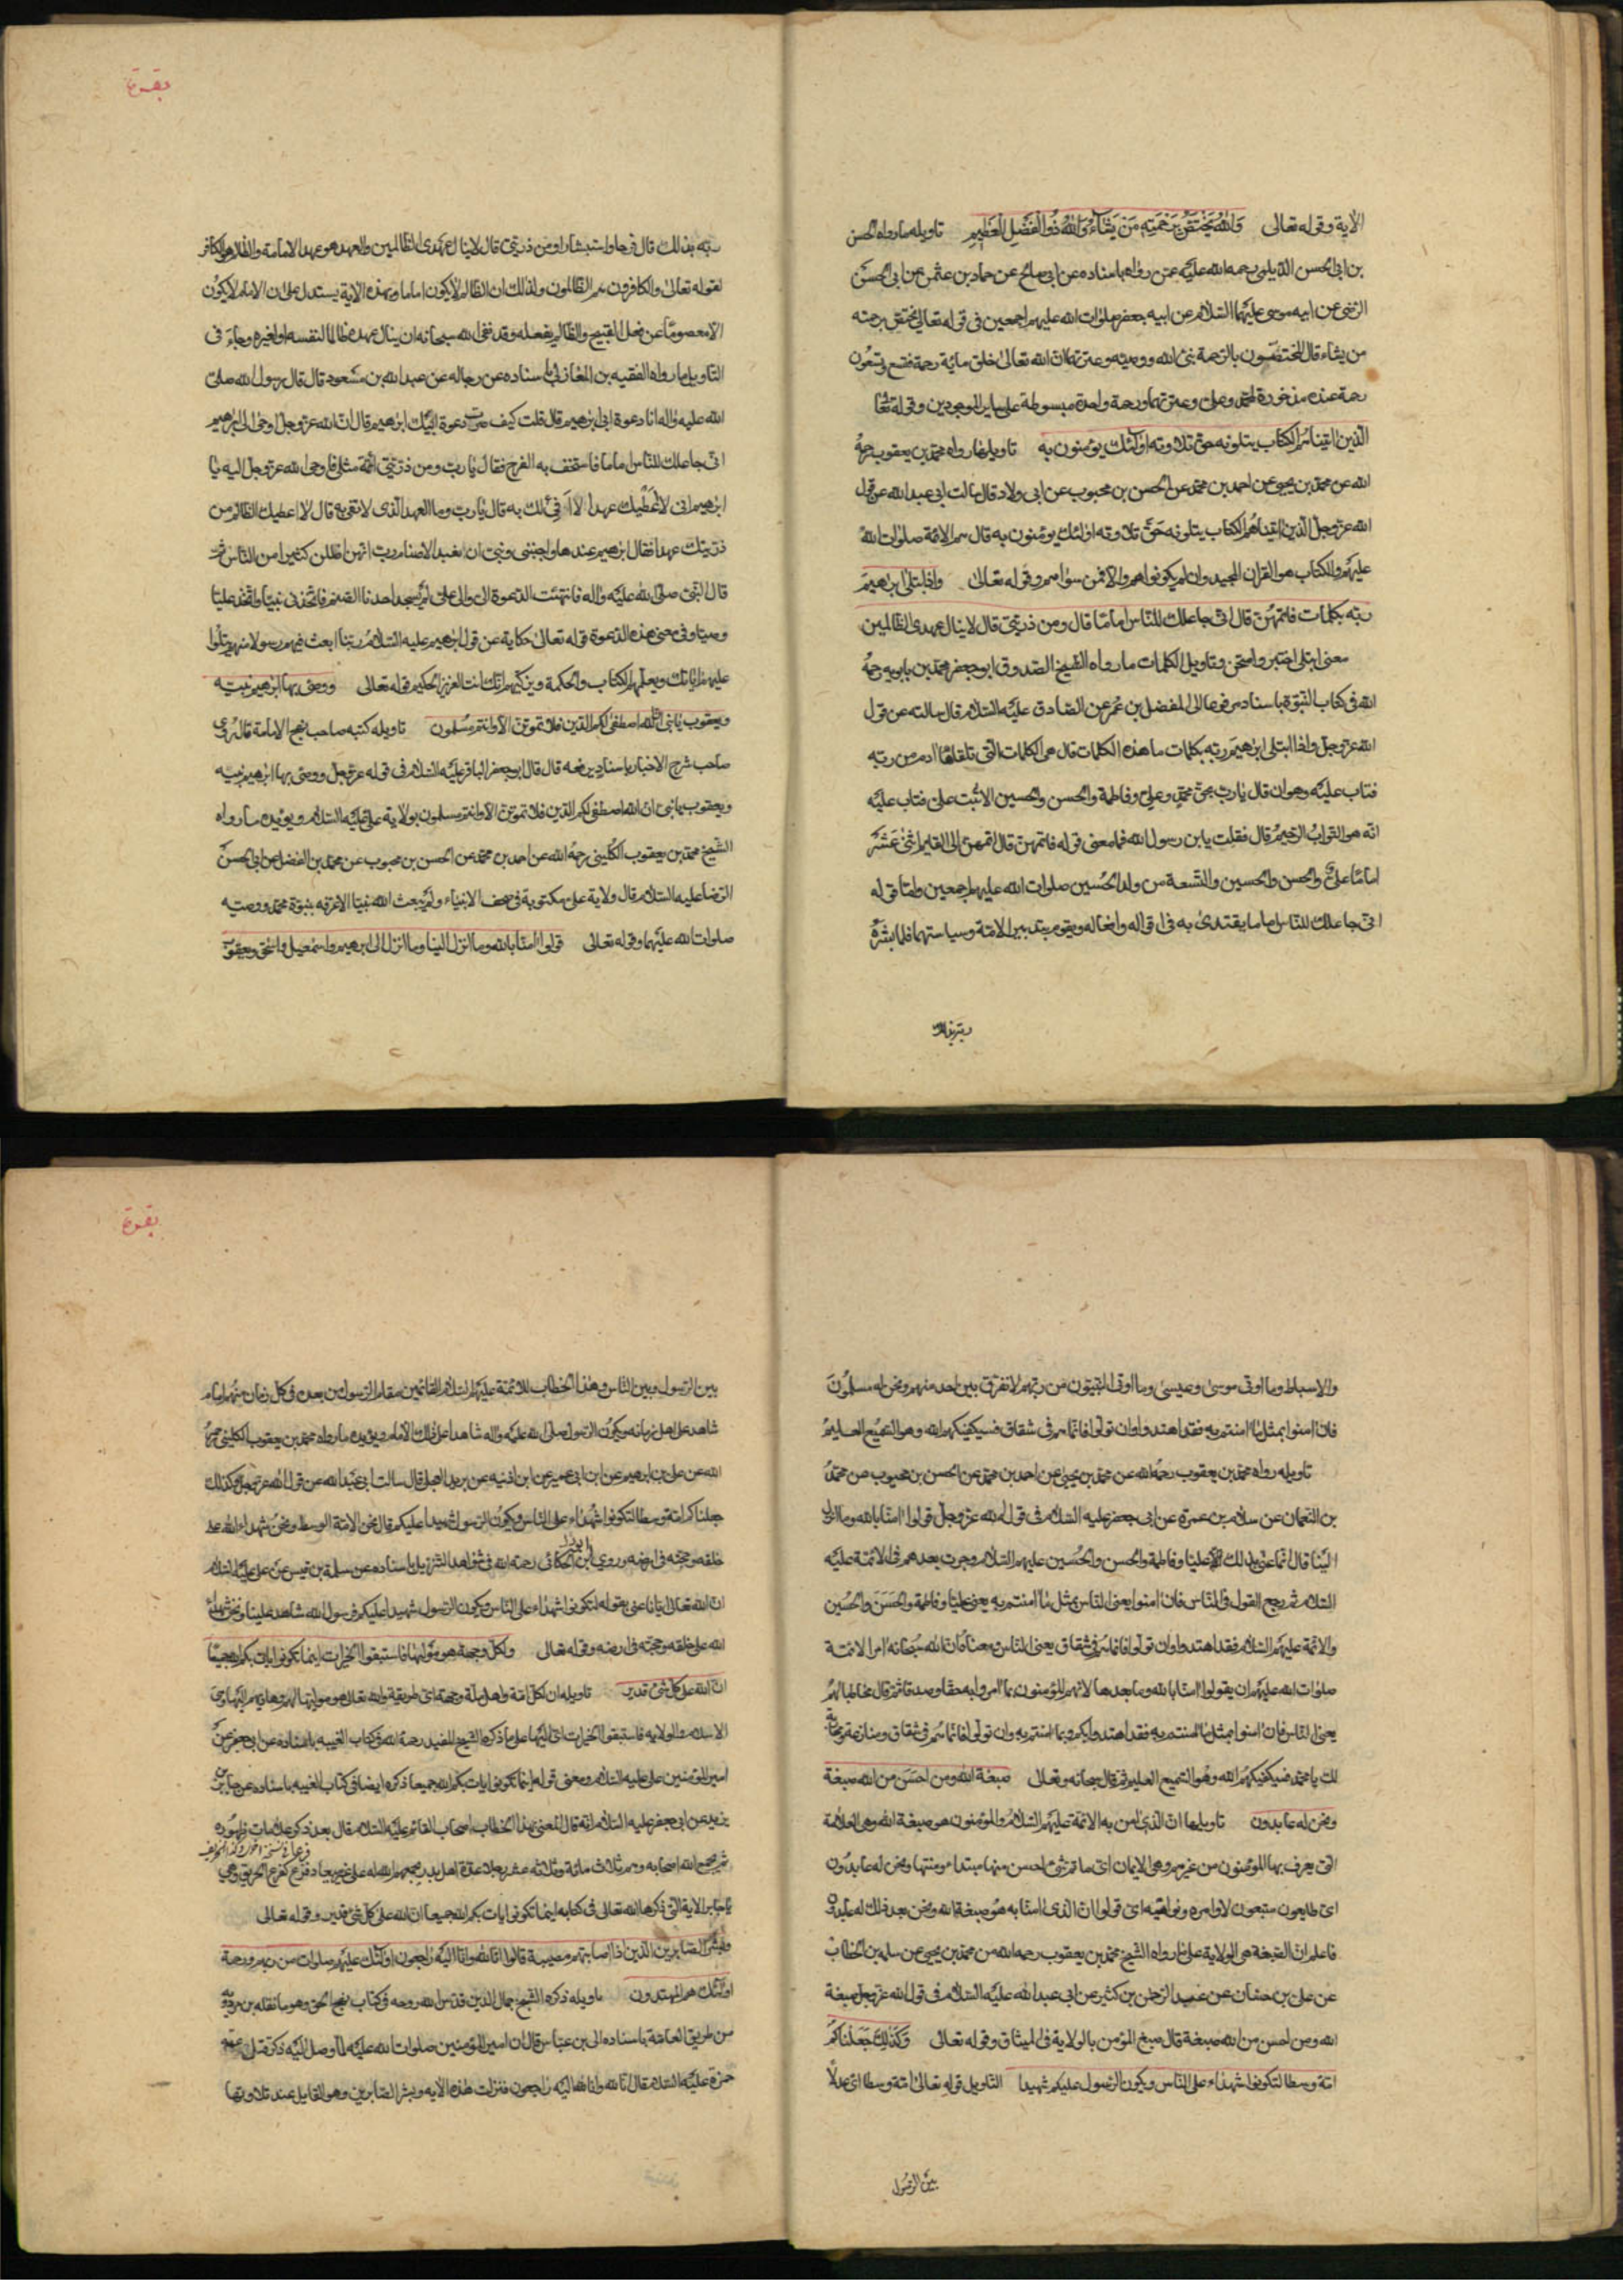 الآية وقوله تعالى وَاللّٰهُ يَخْتَصُّ بِرَحْمَتِهِ مَنْ يَشَاءُ وَاللّٰهُ ذُو الْفَضْلِ الْعَظِيمِ تاويله ما رواه الحسن
بن ابى الحسن الديلمى رحمه الله عليه عمن رواه باسناده عن ابى صالح عن حماد بن عثمن عن ابى الحسن
الرضى عن ابيه موسى عليهما السلام عن ابيه جعفر صلوات الله عليهم اجمعين فى قوله تعالى يختص برحمته
من يشاء قال المختصون بالرحمة نبى الله ووصيه وعترتهما ان الله تعالى خلق مائة رحمة فتسع وتسعون
رحمة عنده مذخورة لمحمد وعلى وعترتهما ورحمة واحدة مبسوطة على ساير الموجودين وقوله تعا
الذين اتيناهم الكتاب يتلونه حق تلاوته اولئك يؤمنون به تاويله ما رواه محمد بن يعقوب رحمه
الله عن محمد بن يحيى عن احمد بن محمد عن الحسن بن محبوب عن ابى ولاد قال سالت ابى عبد الله عن قول
الله عز وجل الذين اتيناهم الكتاب يتلونه حق تلاوته اولئك يؤمنون به قال هم الائمة صلوات الله
عليهم والكتاب هو القران المجيد وان لم يكونوا هم والا فمن سواهم وقوله تعالى واذ ابتلى ابرهيم
ربه بكلمات فاتمهن قال انى جاعلك للناس اماما قال ومن ذريتى قال لا ينال عهدى الظالمين
معنى ابتلى اختبر وامتحن وتاويل الكلمات ما رواه الشيخ الصدوق ابو جعفر محمد بن بابويه رحمه
الله فى كتاب النبوة باسناده مرفوعا الى المفضل بن عمر عن الصادق عليه السلام قال سالته عن قول
الله عز وجل واذ ابتلى ابرهيم ربه بكلمات ما هذه الكلمات قال هى الكلمات التى تلقاها ادم من ربه
فتاب عليه وهو ان قال يارب بحق محمد وعلى وفاطمة والحسن والحسين الا تبت على فتاب عليه
انه هو التواب الرحيم قال فقلت يابن رسول الله فما معنى قوله فاتمهن قال اتمهن الى القايم اثنى عشر
اماما على والحسن والحسين والتسعة من ولد الحسين صلوات الله عليهم اجمعين واما قوله
انى جاعلك للناس اماما يقتدى به فى اقواله وافعاله ويقوم بتدبير الامة وسياستها فلما بشره
ربه بذلك
بقرة
ربه بذلك قال فرحا واستبشارا ومن ذريتى قال لا ينال عهدى الظالمين والعهد هو عهد الامامة والظالم هو الكافر
لقوله تعالى والكافرون هم الظالمون ولذلك ان الظالم لا يكون اماما وبهذه الاية يستدل على ان الامام لا يكون
الا معصوما عن فعل القبيح والظالم يفعله وقد نفى الله سبحانه ان ينال عهده ظالما لنفسه او لغيره وجاء فى
التاويل ما رواه الفقيه بن المغازلى باسناده عن رجاله عن عبد الله بن مسعود قال قال رسول الله صلى
الله عليه واله انا دعوة ابى ابرهيم قال قلت كيف صرت دعوة ابيك ابرهيم قال ان الله عز وجل اوحى الى ابرهيم
انى جاعلك للناس اماما فاستخف به الفرح فقال يارب ومن ذريتى ائمة مثلى فاوحى الله عز وجل اليه يا
ابرهيم انى لا اعطيك عهدا لا افى لك به قال يارب وما العهد الذى لا تفى به قال لا اعطيك الظالم من
ذريتك عهدا فقال ابرهيم عندها واجنبنى وبنى ان نعبد الاصنام رب انهن اضللن كثيرا من الناس ثم
قال النبى صلى الله عليه واله فانتهت الدعوة الى والى على لم يسجد احدنا لصنم فاتخذنى نبيا واتخذ عليا
وصيا وفى معنى هذه الدعوة قوله تعالى حكاية عن قول ابرهيم عليه السلام ربنا ابعث فيهم رسولا منهم يتلوا
عليهم اياتك ويعلمهم الكتاب والحكمة ويزكيهم انك انت العزيز الحكيم قوله تعالى ووصى بها ابرهيم بنيه
ويعقوب يا بنى ان الله اصطفى لكم الدين فلا تموتن الا وانتم مسلمون تاويله كتبه صاحب نهج الامامة قال روى
صاحب شرح الاخبار باسناد يرفعه قال قال ابو جعفر الباقر عليه السلام فى قوله عز وجل ووصى بها ابرهيم بنيه
ويعقوب يا بنى ان الله اصطفى لكم الدين فلا تموتن الا وانتم مسلمون بولاية على عليه السلام ويؤيده ما رواه
الشيخ محمد بن يعقوب الكلينى رحمه الله عن احمد بن محمد عن الحسن بن محبوب عن محمد بن الفضل عن ابى الحسن
الرضا عليه السلام قال ولاية على مكتوبة فى صحف الانبياء ولم يبعث الله نبيا الا عرفه بنبوة محمد ووصيه
صلوات الله عليهما وقوله تعالى قولوا امنا بالله وما انزل الينا وما انزل الى ابرهيم واسمعيل واسحق ويعقوب
والاسباط وما اوتى موسى وعيسى وما اوتى النبيون من ربهم لا نفرق بين احد منهم ونحن له مسلمون
فان امنوا بمثل ما امنتم به فقد اهتدوا وان تولوا فانما هم فى شقاق فسيكفيكهم الله وهو السميع العليم
تاويله رواه محمد بن يعقوب رحمه الله عن محمد بن يحيى عن احمد بن محمد عن الحسن بن محبوب عن محمد
بن النعمان عن سلام بن عمرة عن ابى جعفر عليه السلام فى قول الله عز وجل قولوا امنا بالله وما انزل
الينا قال انما عنى بذلك عليا وفاطمة والحسن والحسين عليهم السلام وجرت بعدهم فى الائمة عليه
السلام ثم رجع القول فى الناس فان امنوا يعنى الناس بمثل ما امنتم به يعنى عليا وفاطمة والحسن والحسين
والائمة عليهم السلام فقد اهتدوا وان تولوا فانما هم فى شقاق يعنى الناس ومعناه ان الله سبحانه امر الائمة
صلوات الله عليهم ان يقولوا امنا بالله وما بعدها لانهم المؤمنون بما امروا به حقا وصدقا ثم قال مخاطبا لهم
يعنى الناس فان امنوا بمثل ما امنتم به فقد اهتدوا بكم وبما امنتم به وان تولوا فانما هم فى شقاق ومنازعة ومحاربة
لك يا محمد فسيكفيكهم الله وهو السميع العليم ثم قال سبحانه وتعالى صبغة الله ومن احسن من الله صبغة
ونحن له عابدون تاويلها ان الذى امن به الائمة عليهم السلام والمؤمنون هو صبغة الله وهى العلامة
التى يعرف بها المؤمنون من غيرهم وهى الايمان اى ما ثم شئ احسن منها مبتداء ومنتها ونحن له عابدون
اى طايعون متبعون لاوامره ونواهيه اى قولوا ان الذى امنا به هو صبغة الله ونحن بعد ذلك له عابدون
فاعلم ان الصبغة هى الولاية على ما رواه الشيخ محمد بن يعقوب رحمه الله عن محمد بن يحيى عن سلمة بن الخطاب
عن على بن حسان عن عبد الرحمن بن كثير عن ابى عبد الله عليه السلام فى قول الله عز وجل صبغة
الله ومن احسن من الله صبغة قال صبغ المؤمن بالولاية فى الميثاق وقوله تعالى وَكَذٰلِكَ جَعَلْنَاكُمْ
امة وسطا لتكونوا شهداء على الناس ويكون الرسول عليكم شهيدا التاويل قوله تعالى امة وسطا اى عدلا
بين الرسول
بقرة
بين الرسول وبين الناس وهذا الخطاب للائمة عليهم السلام القائمين مقام الرسول من بعده فى كل زمان منهم امام
شاهد على اهل زمانه ويكون الرسول صلى الله عليه واله شاهدا على ذلك الامام ويؤيده ما رواه محمد بن يعقوب الكلينى رحمه
الله عن على بن ابرهيم عن ابن ابى عمير عن ابن اذينه عن بريد العجلى قال سالت ابى عبد الله عن قول الله عز وجل وكذلك
جعلناكم امة وسطا لتكونوا شهداء على الناس ويكون الرسول شهيدا عليكم قال نحن الامة الوسط ونحن شهداء الله على
خلقه وحجته فى ارضه وروى ابو القاسم الحسكانى رحمه الله فى شواهد التنزيل باسناده عن سليم بن قيس عن على عليه السلام
ان الله تعالى ايانا عنى بقوله لتكونوا شهداء على الناس ويكون الرسول شهيدا عليكم فرسول الله شاهد علينا ونحن شهداء
الله على خلقه وحجته فى ارضه وقوله تعالى ولكل وجهة هو موليها فاستبقوا الخيرات اينما تكونوا يات بكم الله جميعا
ان الله على كل شئ قدير تاويله ان لكل امة واهل ملة وجهة اى طريقة والله تعالى هو موليها لهم وهاديهم اليها وهى
الاسلام والولايه فاستبقوا الخيرات اى اليها على ما ذكره الشيخ المفيد رحمه الله فى كتاب الغيبه باسناده عن ابى جعفر عن
امير المؤمنين على عليه السلام ومعنى قوله اينما تكونوا يات بكم الله جميعا ذكره ايضا فى كتاب الغيبه باسناده عن جابر بن
يزيد عن ابى جعفر عليه السلام انه قال المعنى بهذا الخطاب اصحاب القائم عليه السلام قال بعد ذكر علامات ظهوره
ثم يجمع الله اصحابه وهم ثلاث مائة وثلاثة عشر رجلا عدة اهل بدر يجمعهم الله له على غير ميعاد قزع كقزع الخريف وهى
يا جابر الاية التى ذكرها الله تعالى فى كتابه اينما تكونوا يات بكم الله جميعا ان الله على كل شئ قدير وقوله تعالى
وبشر الصابرين الذين اذا اصابتهم مصيبة قالوا انا لله وانا اليه راجعون اولئك عليهم صلوات من ربهم ورحمة
اولئك هم المهتدون تاويله ذكره الشيخ جمال الدين قدس الله روحه فى كتاب نهج الحق وهو ما نقله بن مردويه
من طريق العامة باسناده الى بن عباس قال ان امير المؤمنين صلوات الله عليه لما وصل اليه ذكر قتل عمه
حمزة عليه السلام قال انا لله وانا اليه راجعون فنزلت هذه الايه وبشر الصابرين وهو القايل عند تلاوتها